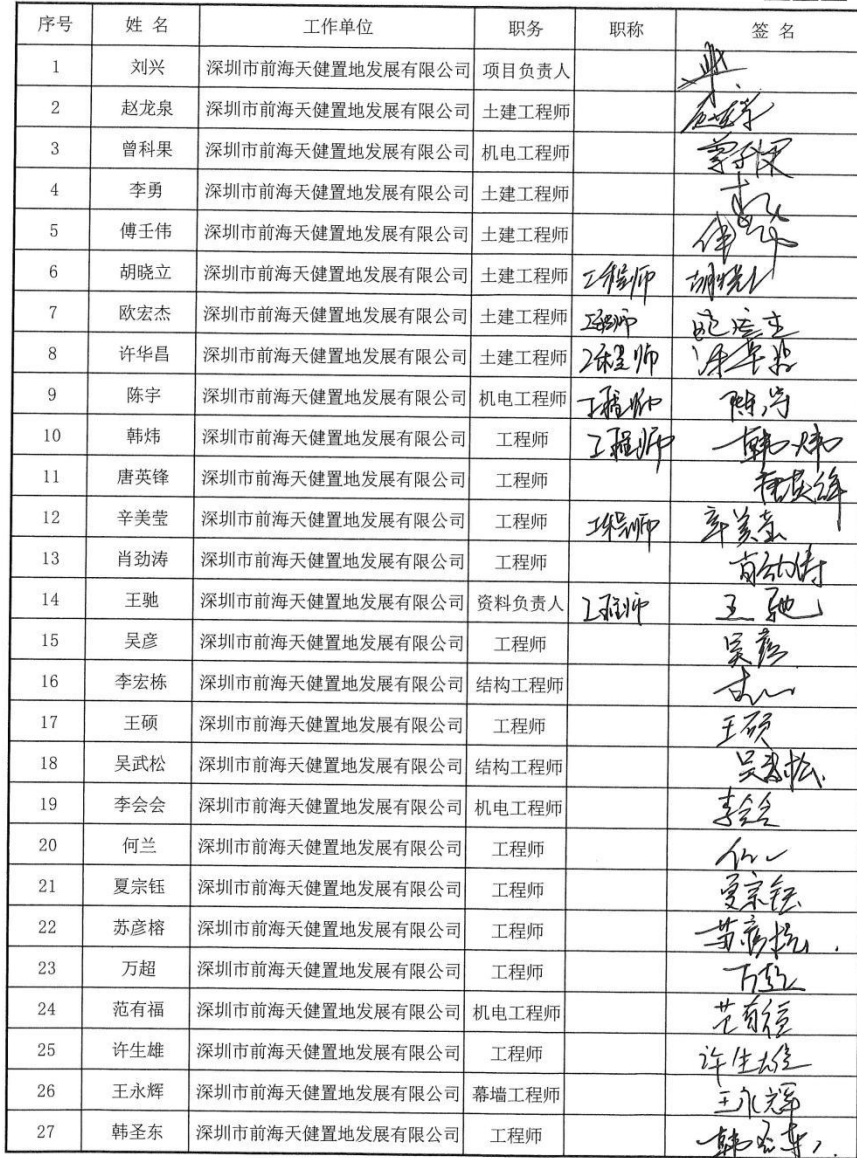 序号 姓 名 工作单位 职务 职称 签 名
1 刘兴 深圳市前海天健置地发展有限公司 项目负责人
2 赵龙泉 深圳市前海天健置地发展有限公司 土建工程师
3 曾科果 深圳市前海天健置地发展有限公司 机电工程师
4 李勇 深圳市前海天健置地发展有限公司 土建工程师
5 傅壬伟 深圳市前海天健置地发展有限公司 土建工程师
6 胡晓立 深圳市前海天健置地发展有限公司 土建工程师 工程师 胡晓立
7 欧宏杰 深圳市前海天健置地发展有限公司 土建工程师 工程师 欧宏杰
8 许华昌 深圳市前海天健置地发展有限公司 土建工程师 工程师 许华昌
9 陈宇 深圳市前海天健置地发展有限公司 机电工程师 工程师 陈宇
10 韩炜 深圳市前海天健置地发展有限公司 工程师 工程师 韩炜
11 唐英锋 深圳市前海天健置地发展有限公司 工程师 唐英锋
12 辛美莹 深圳市前海天健置地发展有限公司 工程师 工程师 辛美莹
13 肖劲涛 深圳市前海天健置地发展有限公司 工程师 肖劲涛
14 王驰 深圳市前海天健置地发展有限公司 资料负责人 工程师 王驰
15 吴彦 深圳市前海天健置地发展有限公司 工程师 吴彦
16 李宏栋 深圳市前海天健置地发展有限公司 结构工程师
17 王硕 深圳市前海天健置地发展有限公司 工程师 王硕
18 吴武松 深圳市前海天健置地发展有限公司 结构工程师 吴武松
19 李会会 深圳市前海天健置地发展有限公司 机电工程师 李会会
20 何兰 深圳市前海天健置地发展有限公司 工程师
21 夏宗钰 深圳市前海天健置地发展有限公司 工程师 夏宗钰
22 苏彦榕 深圳市前海天健置地发展有限公司 工程师 苏彦榕
23 万超 深圳市前海天健置地发展有限公司 工程师 万超
24 范有福 深圳市前海天健置地发展有限公司 机电工程师 范有福
25 许生雄 深圳市前海天健置地发展有限公司 工程师 许生雄
26 王永辉 深圳市前海天健置地发展有限公司 幕墙工程师 王永辉
27 韩圣东 深圳市前海天健置地发展有限公司 工程师 韩圣东